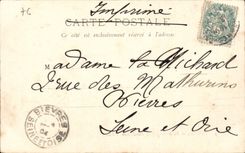 76
Imprimé
CARTE POSTALE
Ce côté est exclusivement réservé à l'adresse
M
adame la Michard
2 rue des Mathurins
Bièvres
Seine et Oise
BIEVRES
SEINE-ET-OISE